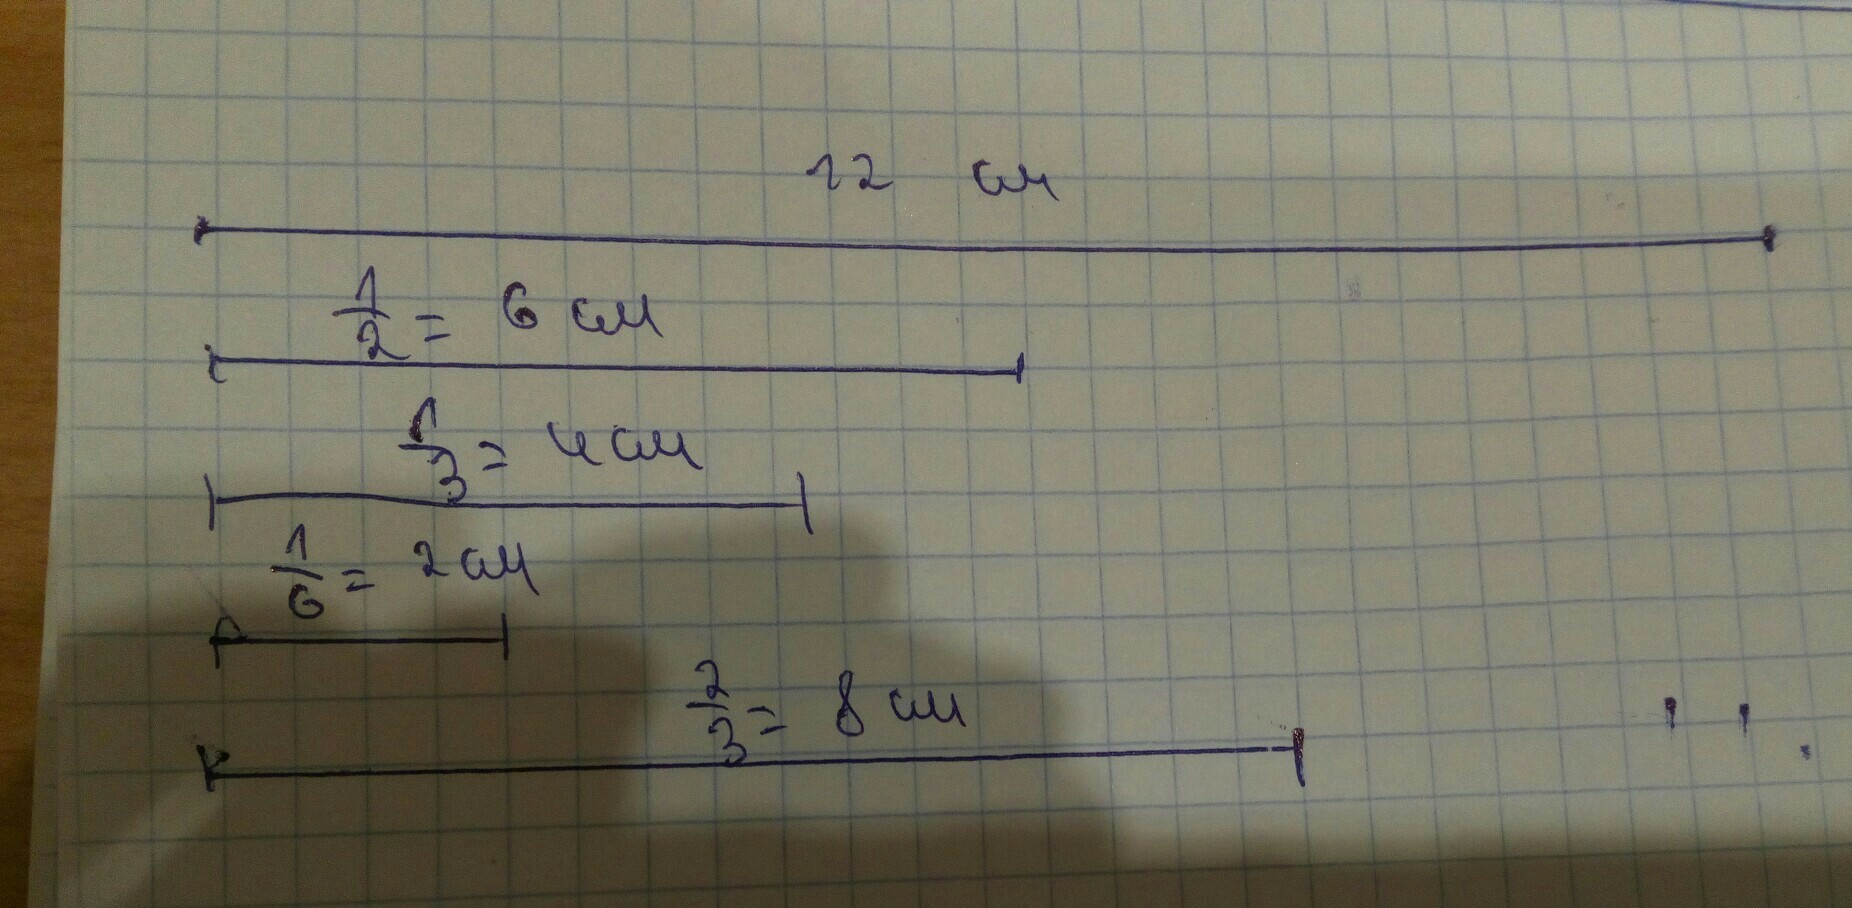 12 см
1/2 = 6 см
1/3 = 4 см
1/6 = 2 см
2/3 = 8 см